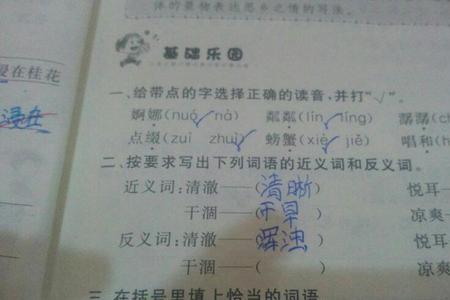 体的景物表达思乡之情的写法。
基础乐园
浸在桂花
浸在
一、给带点的字选择正确的读音,并打“√”。
婀娜(nuó√nà) 粼粼(lín√líng) 潺潺(c
点缀(zuì zhuì√) 螃蟹(xiè√jiě) 唱和(h
二、按要求写出下列词语的近义词和反义词。
近义词:清澈——(清晰) 悦耳
干涸——(干旱) 凉爽
反义词:清澈——(浑浊) 悦耳
干涸——( ) 凉爽
三、在括号里填上恰当的词语。